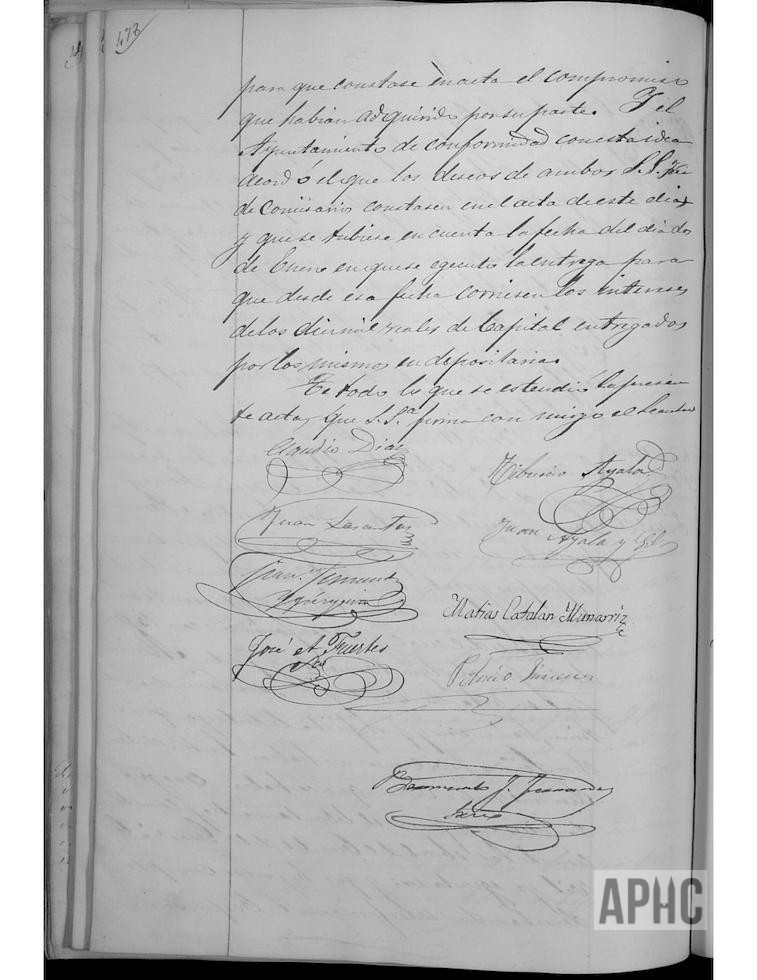 473
para que constase en acta el compromiso
que habian adquirido por su parte. Y el
Ayuntamiento de conformidad con esta idea
acordó el que los deseos de ambos S.S. Ttes
de Comisario constasen en el acta de este dia,
y que se tubiese en cuenta la fecha del dia dos
de Enero en que se egecutó la entrega para
que desde esa fecha corriesen los intereses
de los diez mil reales de Capital entregados
por los mismos en depositaria.
De todo lo que se estendió la presen
te acta, que S.Sª firma con migo el Secretario
Claudio Diaz
Tiburcio Ayala
Juan Lasantas
Juan Ayala y Gil
Matias Catalan Munarriz
José A. Fuertes
J. Fernandez
APHC